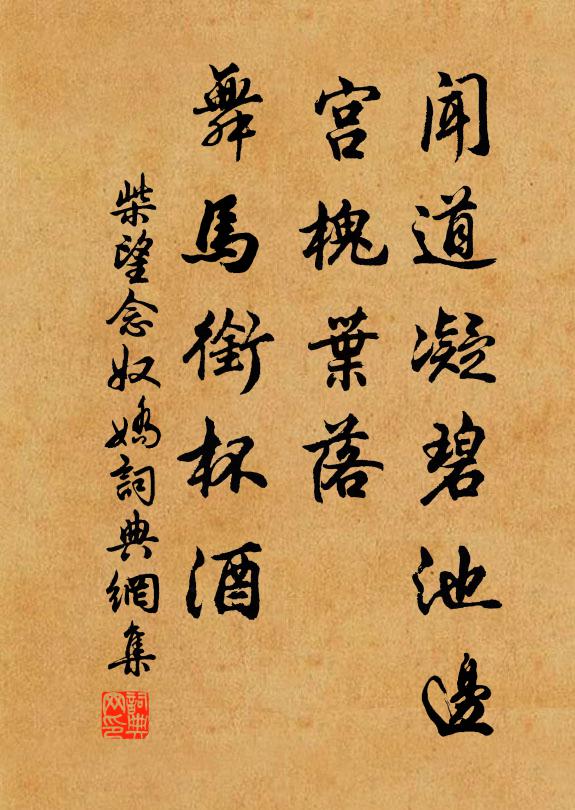 聞道凝碧池邊
宮槐葉落
舞馬銜杯酒
柴望念奴嬌詞典網集
詞典网印